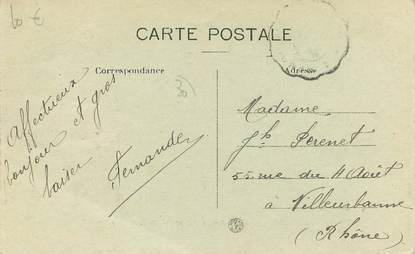 10 €
CARTE POSTALE
Correspondance
Adresse
30
Affectueux
bonjour et gros
baiser
Fernande
Madame
Jh Perenet
55 rue du 4 Août
à Villeurbanne
(Rhône)